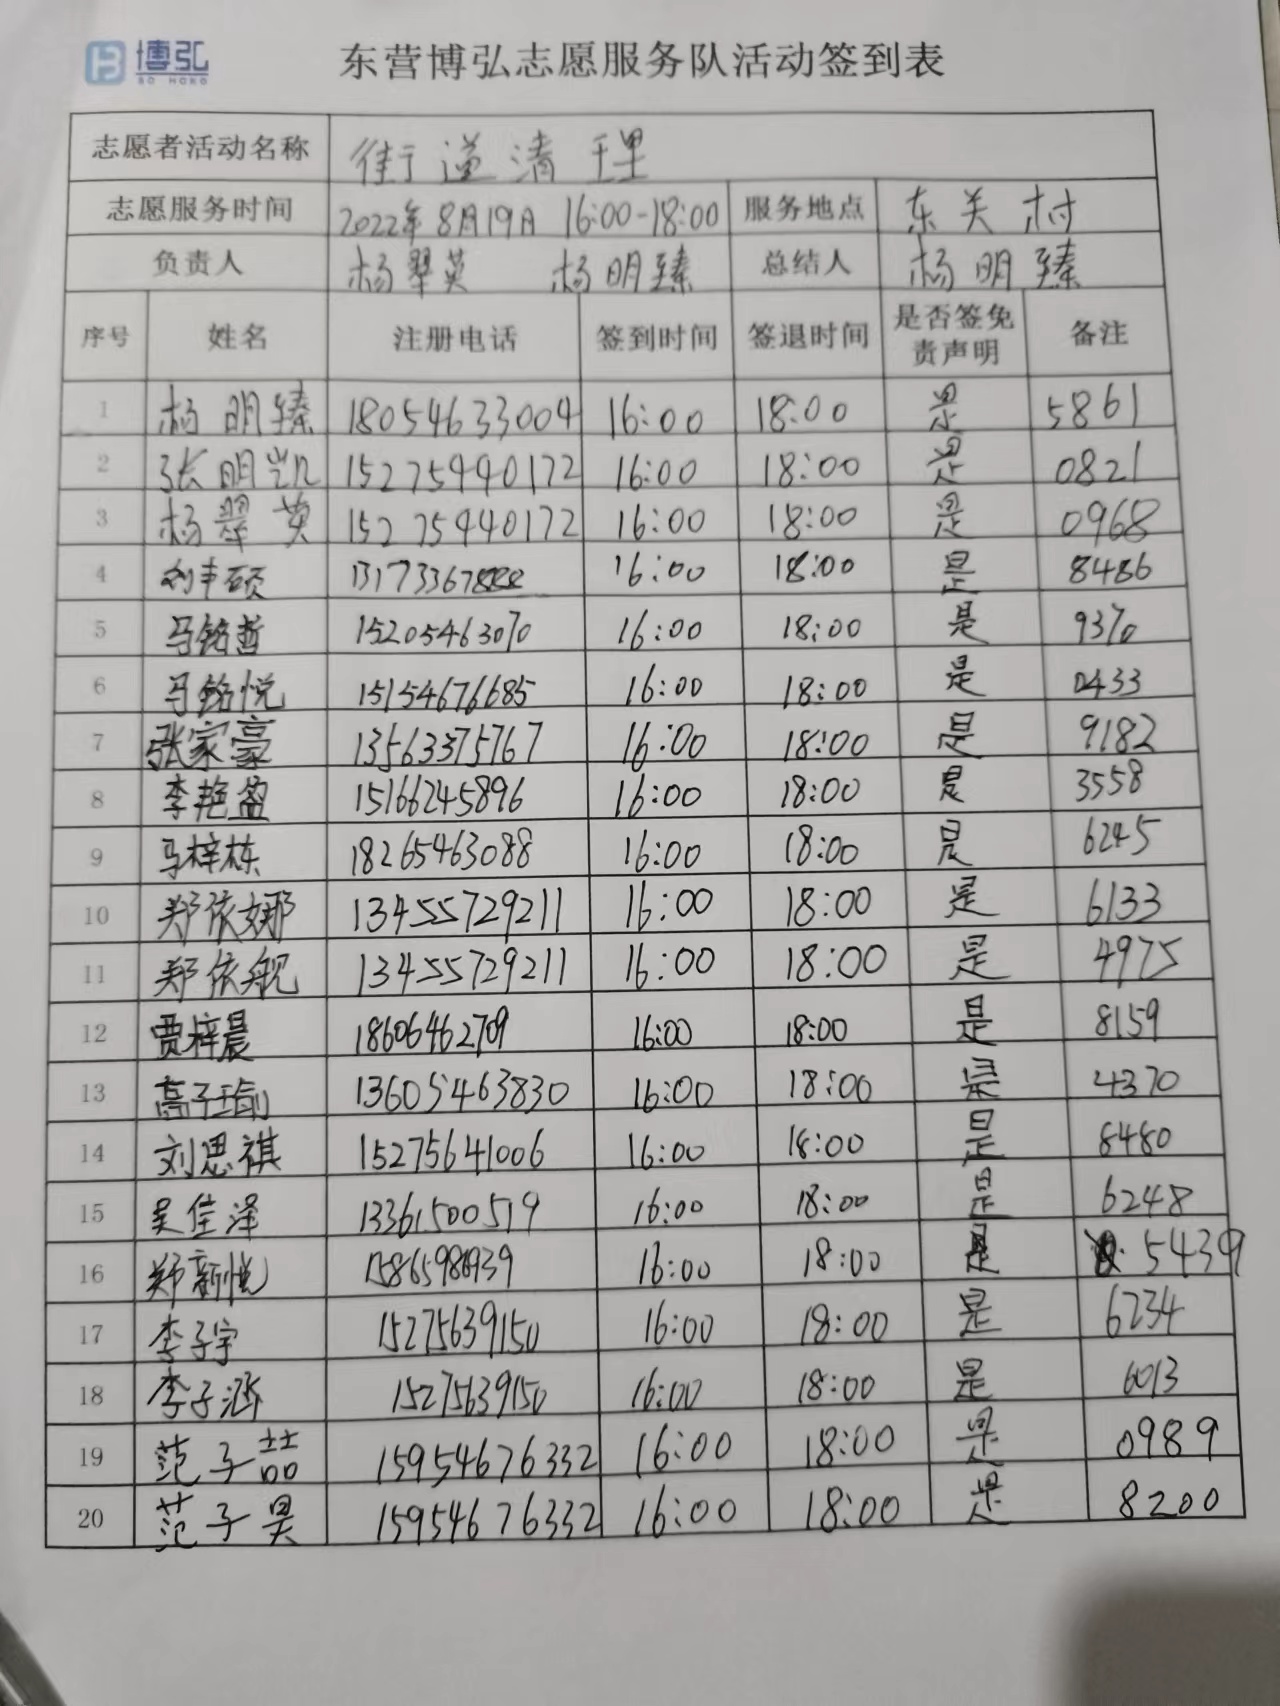 博弘
BO HONG
东营博弘志愿服务队活动签到表
志愿者活动名称 街道清理
志愿服务时间 2022年8月19日 16:00-18:00 服务地点 东关村
负责人 杨翠英 杨明臻 总结人 杨明臻
序号 姓名 注册电话 签到时间 签退时间 是否签免责声明 备注
1 杨明臻 18054633004 16:00 18:00 是 5861
2 张明凯 15275940172 16:00 18:00 是 0821
3 杨翠英 15275940172 16:00 18:00 是 0968
4 刘丰硕 16:00 18:00 是 8486
5 马铭哲 15205463070 16:00 18:00 是 9370
6 马铭悦 15154676685 16:00 18:00 是 0433
7 张家豪 13563375767 16:00 18:00 是 9182
8 李艳盈 15166245896 16:00 18:00 是 3558
9 马梓栋 18265463088 16:00 18:00 是 6245
10 郑依娜 13455729211 16:00 18:00 是 6133
11 郑依舰 13455729211 16:00 18:00 是 4975
12 贾梓晨 18606462709 16:00 18:00 是 8159
13 高子瑜 13605463830 16:00 18:00 是 4370
14 刘思祺 15275641006 16:00 18:00 是 8480
15 吴佳泽 13361500519 16:00 18:00 是 6248
16 郑新悦 16:00 18:00 是 5439
17 李子宇 15275639150 16:00 18:00 是 6234
18 李子涵 15275639150 16:00 18:00 是 6013
19 范子喆 15954676332 16:00 18:00 是 0989
20 范子昊 15954676332 16:00 18:00 是 8200